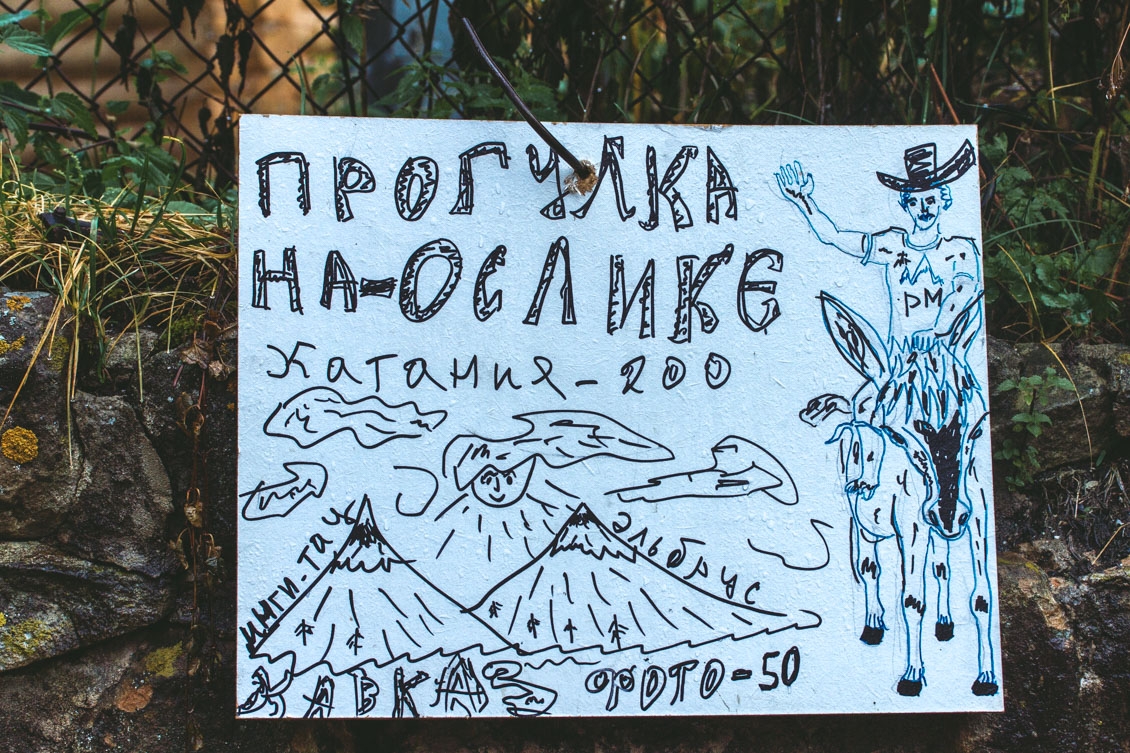 ПРОГУЛКА
НА-ОСЛИКЕ
Катания-200
ИМГИ-ТАУ
Эльбрус
КАВКАЗ ФОТО-50
РМ